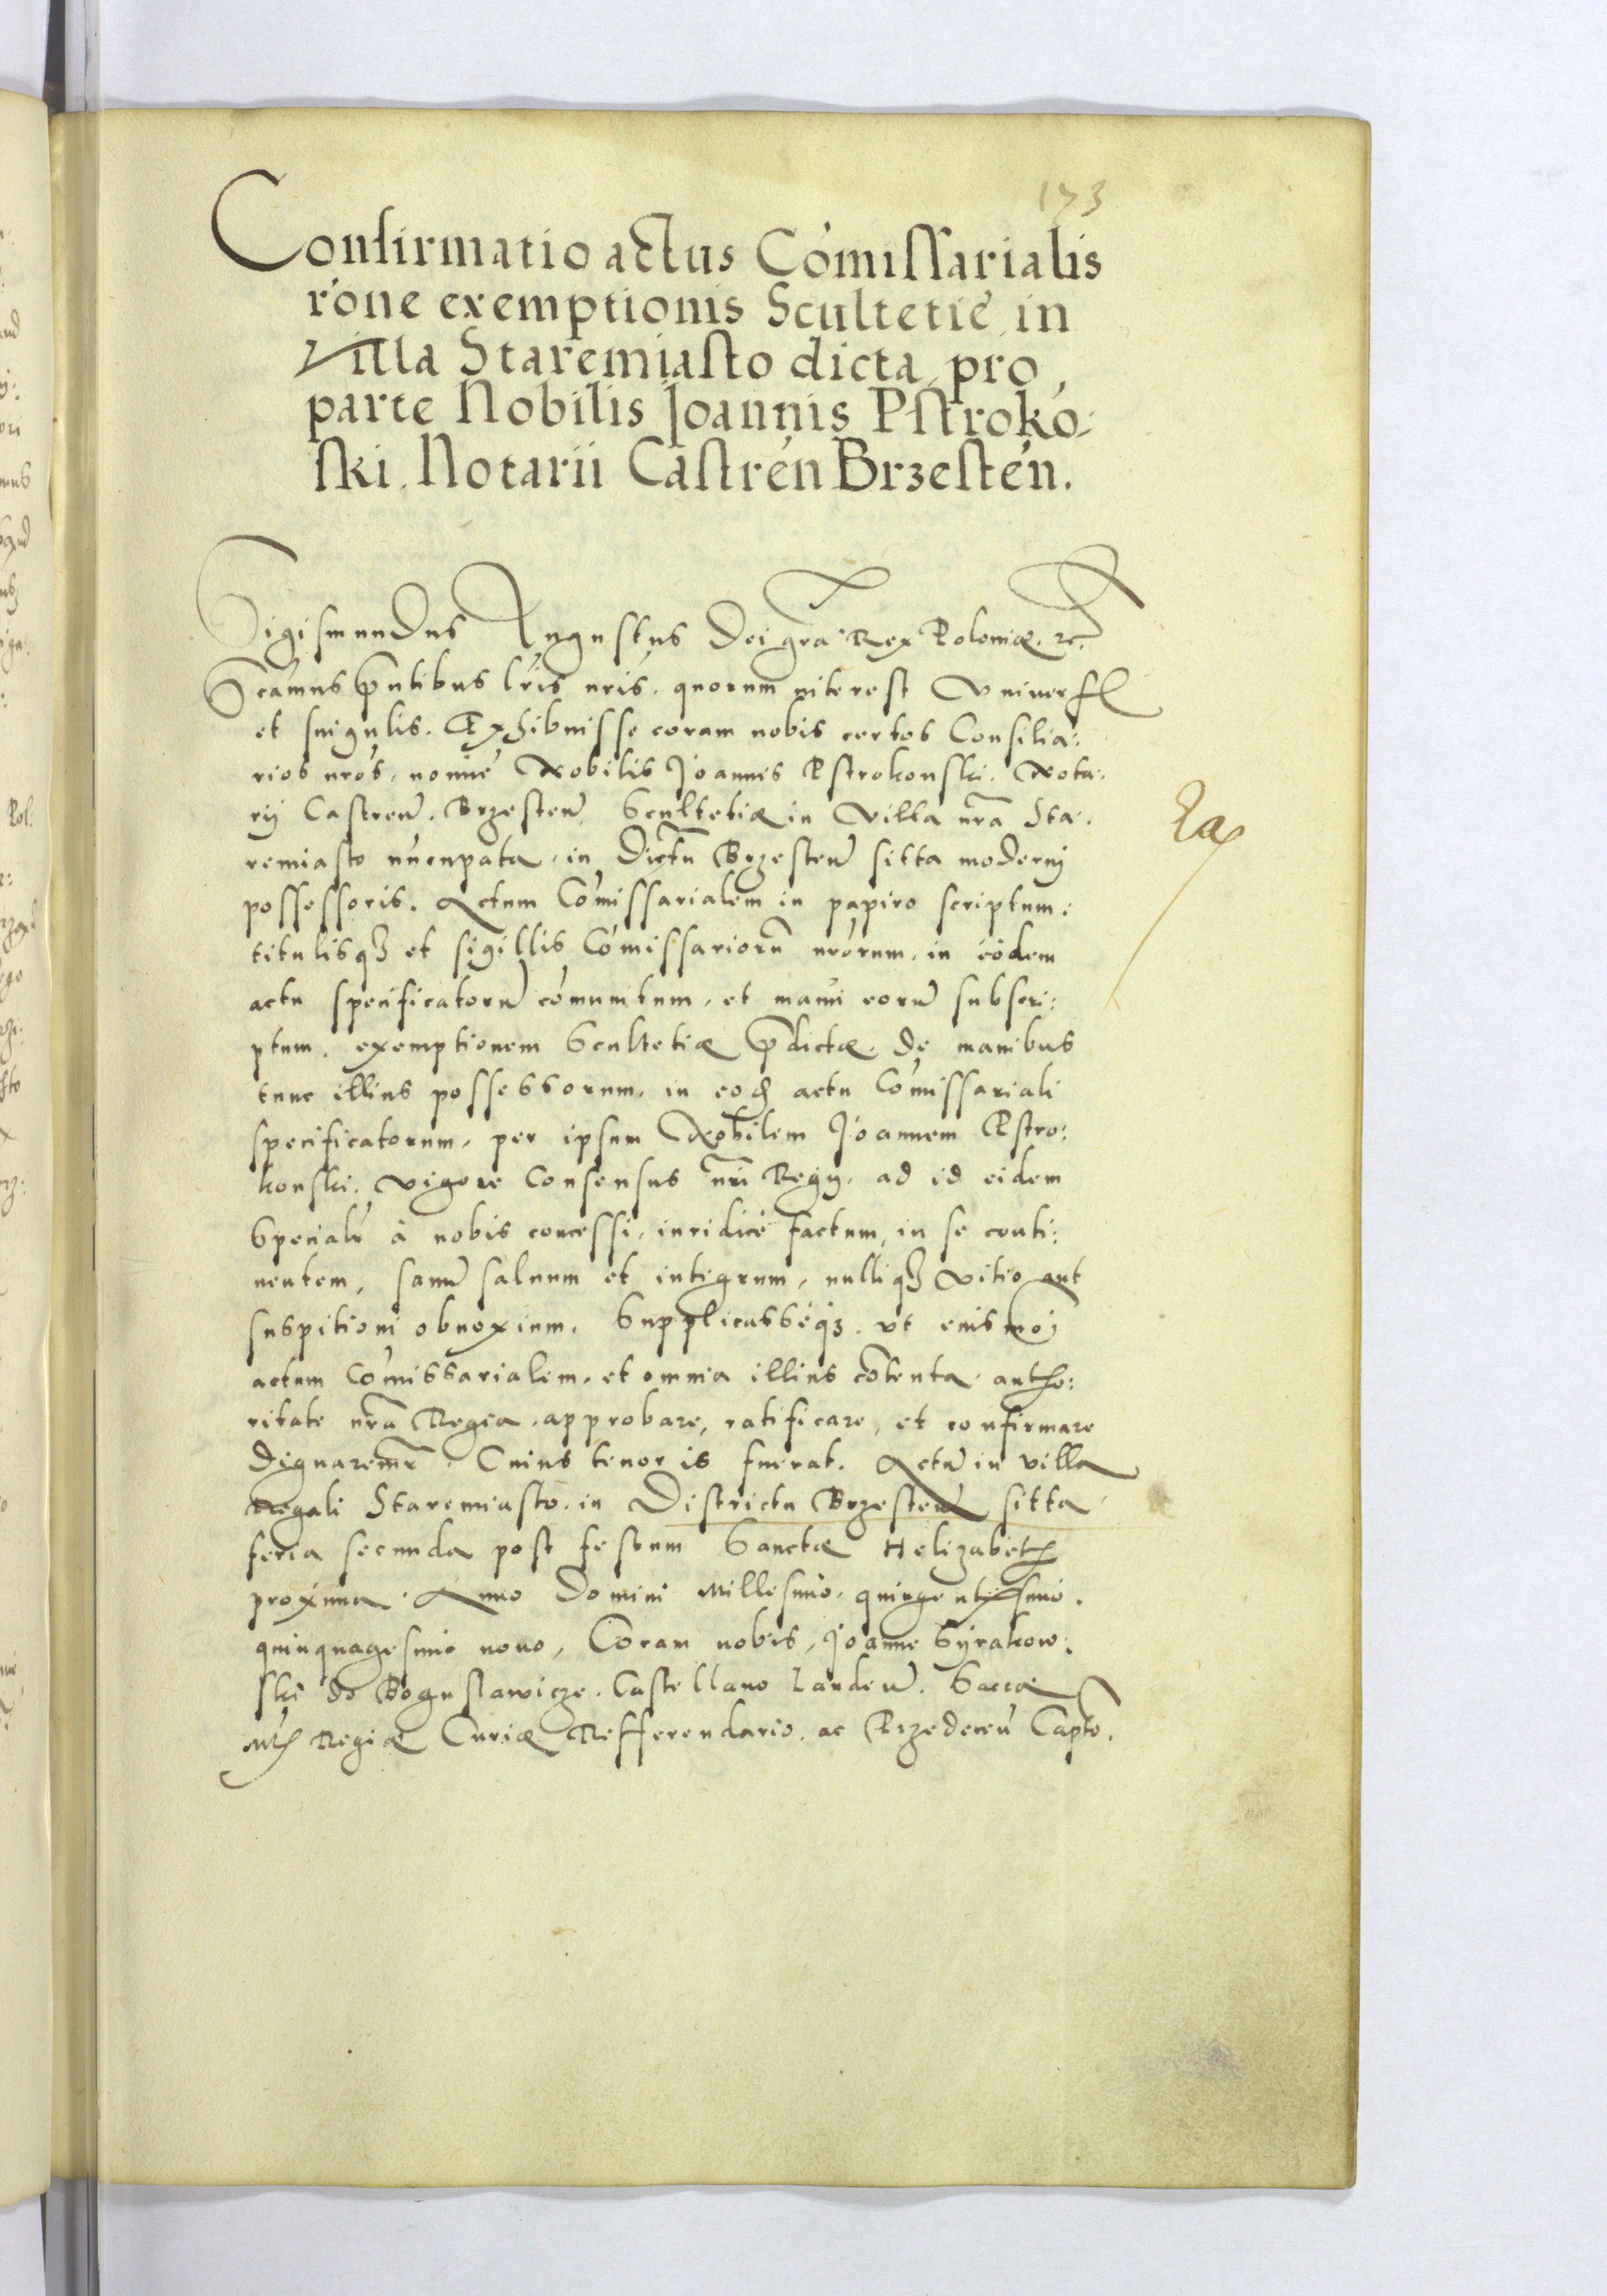 173
Confirmatio actus Cõmissarialis
rõne exemptionis Scultetiæ in
Villa Staremiasto dicta, pro
parte Nobilis Joannis Pstroko-
ski, Notarii Castreñ Brzesteñ.
Sigismundus Augustus Dei gr̃a Rex Poloniæ. etc.
Sc̃amus p̃ntibus l̃ris nr̃is, quorum interest Vniuers̃
et singulis. Exhibuisse coram nobis certos Consilia:
rios nr̃os, noĩne Nobilis Joannis Pstrokonski, Nota:
rij Castreñ. Brzesteñ, Scultetiæ in Villa nr̃a Sta:
remiasto nũcupata, in Dictũ Brzesteñ sitta moderni
possessoris. Actum Cõmissarialem in papiro scriptum:
titulisq3 et sigillis Cõmissariorũ nr̃orum, in eõdem
actu specificatorũ cõmunitum, et manũ eorũ subscri:
ptum, exemptionem Scultetiæ p̃dictæ, de manibus
tunc illius possessorum, in eod̃ actu Cõmissariali
specificatorum, per ipsum Nobilem Joannem Pstro:
konski, vigore Consensus nr̃i Regij, ad id eidem
Specialr̃ à nobis concessi, iuridicè factum, in se conti:
nentem, sanũ saluum et integrum, nulliq3 Vitio aut
suspitioni obnoxium. Supplicasséq3, vt eiusmõi
actum Cõmissarialem, et omnia illius cõtenta autho:
ritate nr̃a Regia, approbare, ratificare, et confirmare
dignaremr̃. Cuius tenor is fuerat. Actũ in villa
Regali Staremiasto, in Districtu Brzesteñ sitta
feria secunda post festum Sanctæ Helizabeth
proxima. Anno Domini Millesimo, quingentesimo,
quinquagesimo nono, Coram nobis, Joanne Syrakow:
ski de Boguslawicze, Castellano Landeñ. Sacræ
Mtis Regiæ Curiæ Refferendario, ac Przedeceñ Capto.